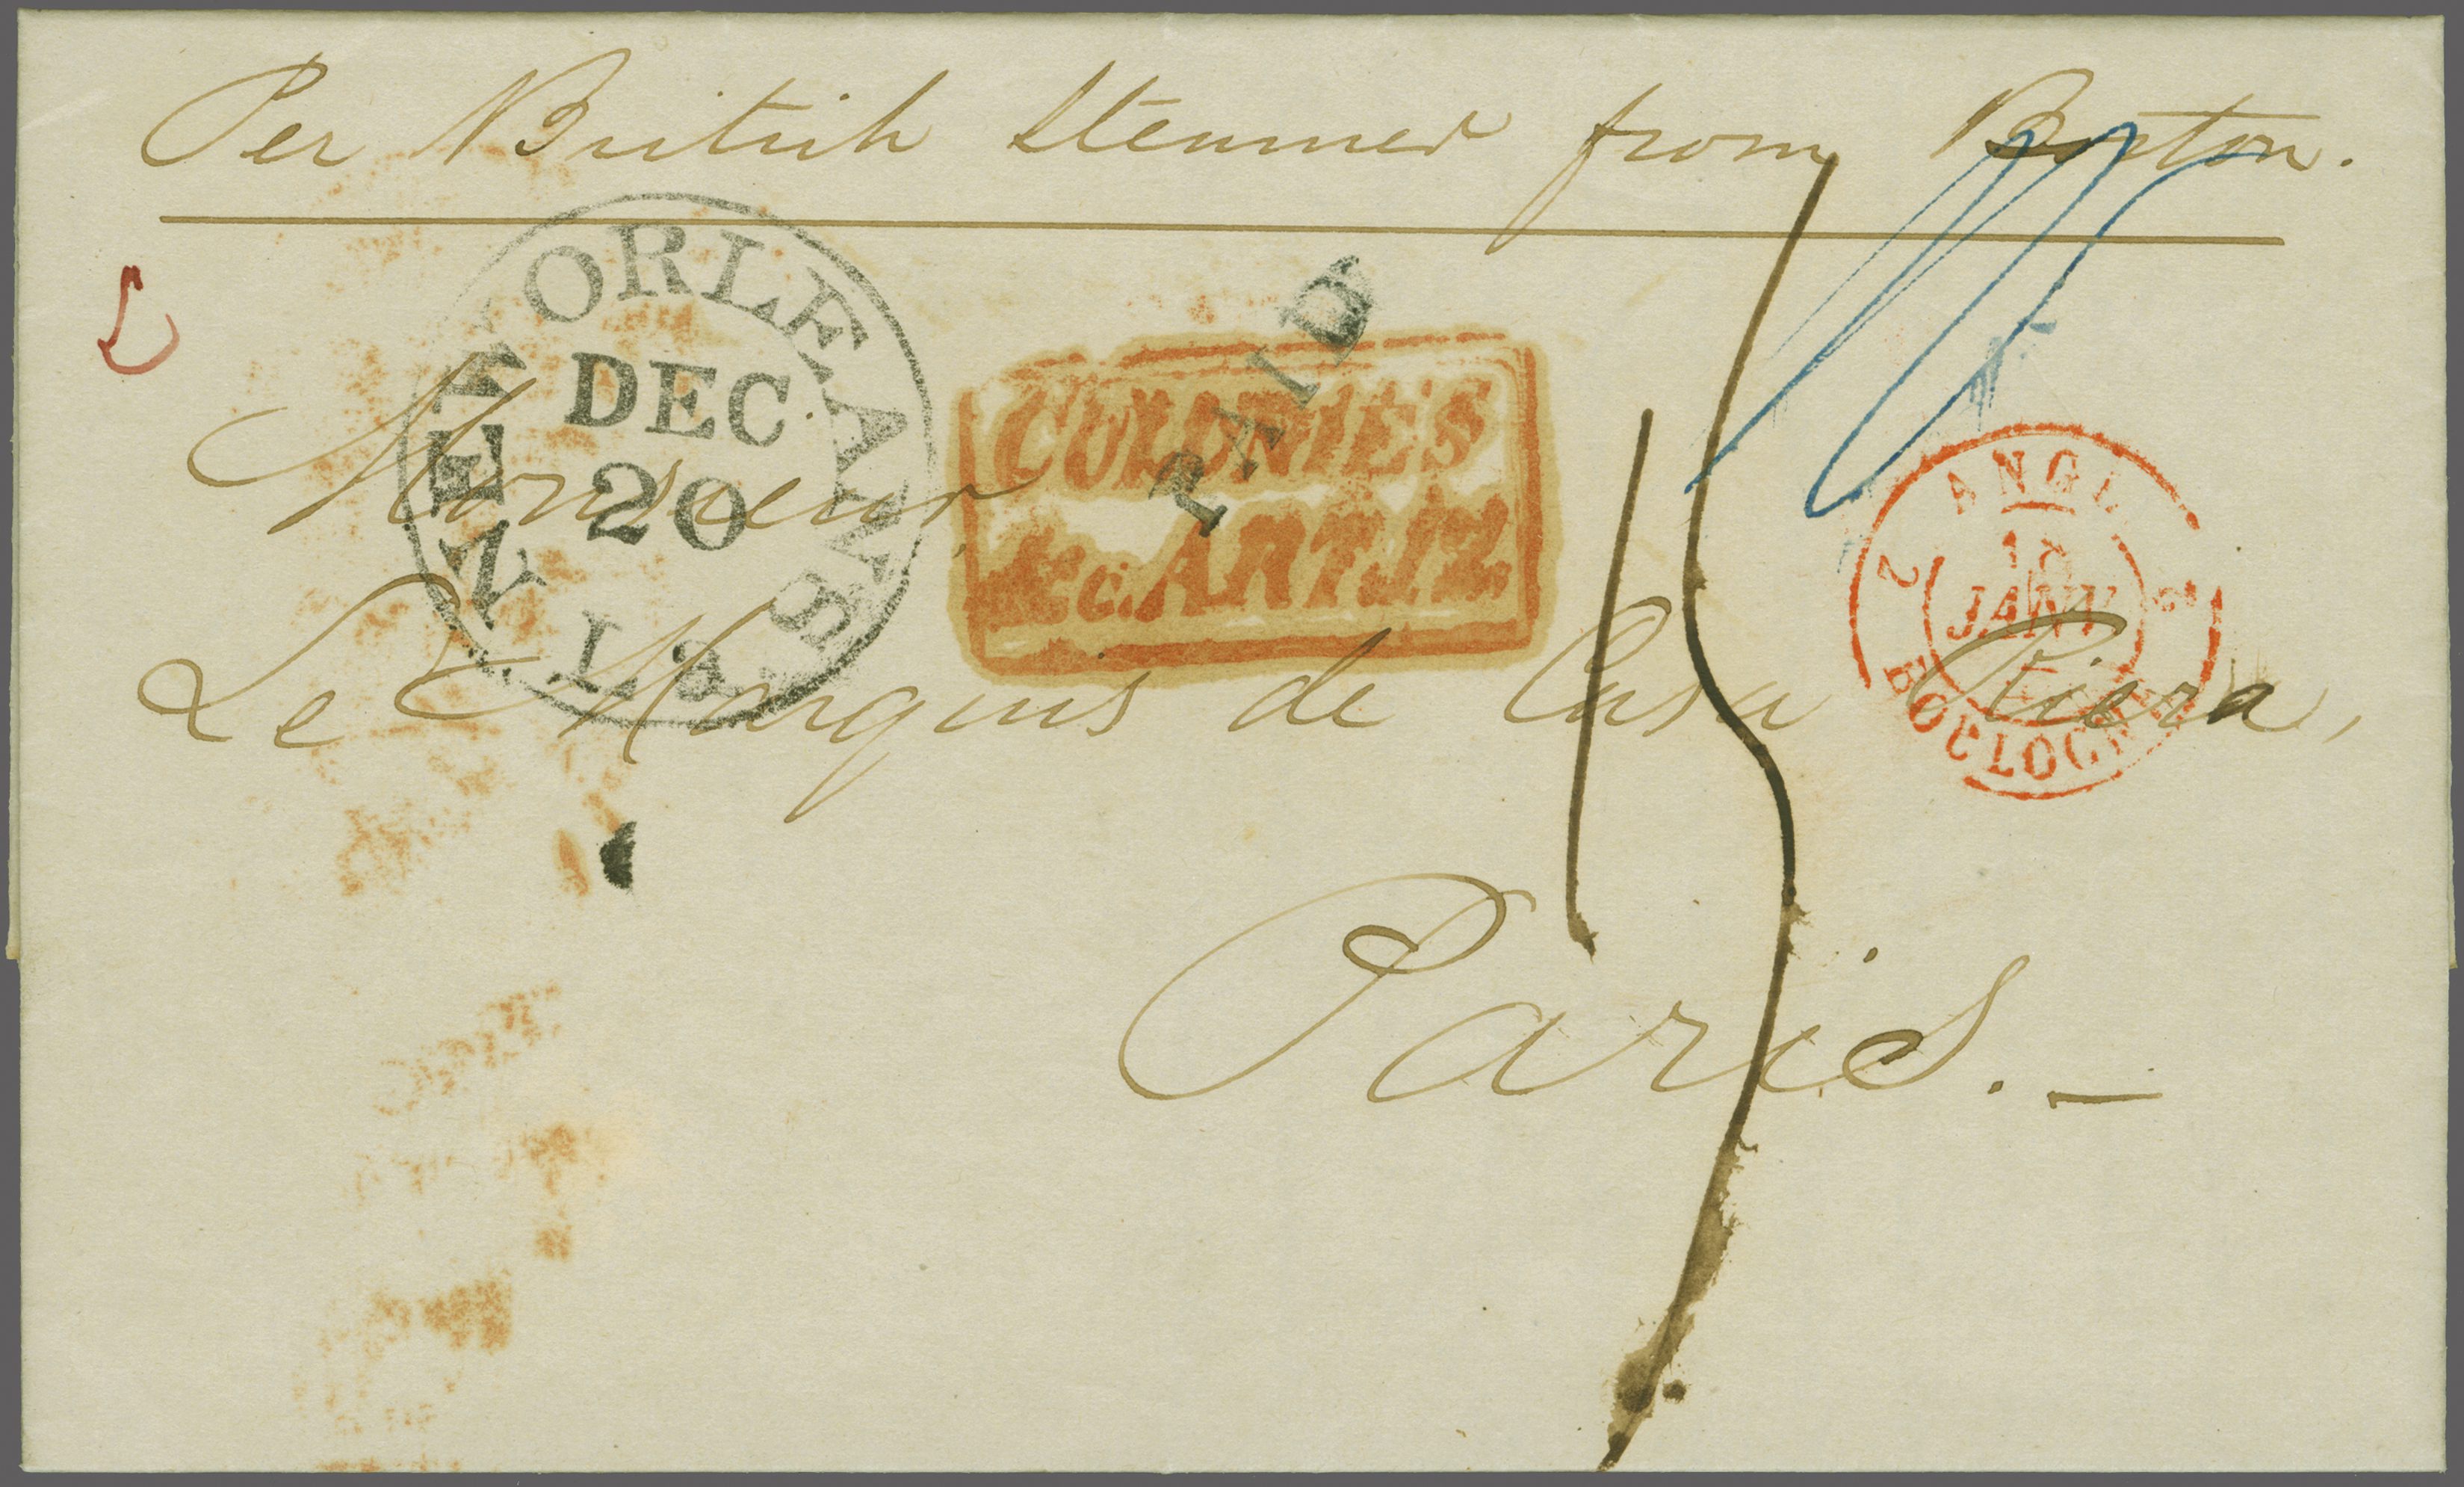 Per British Steamer from Boston.
NEW ORLEANS
DEC
20
La
PAID
COLONIES
&c. ART. 12.
ANGL.
2 2
JANV
BOULOGNE
Monsieur
Le Marquis de Casa Riera,
Paris. —
15